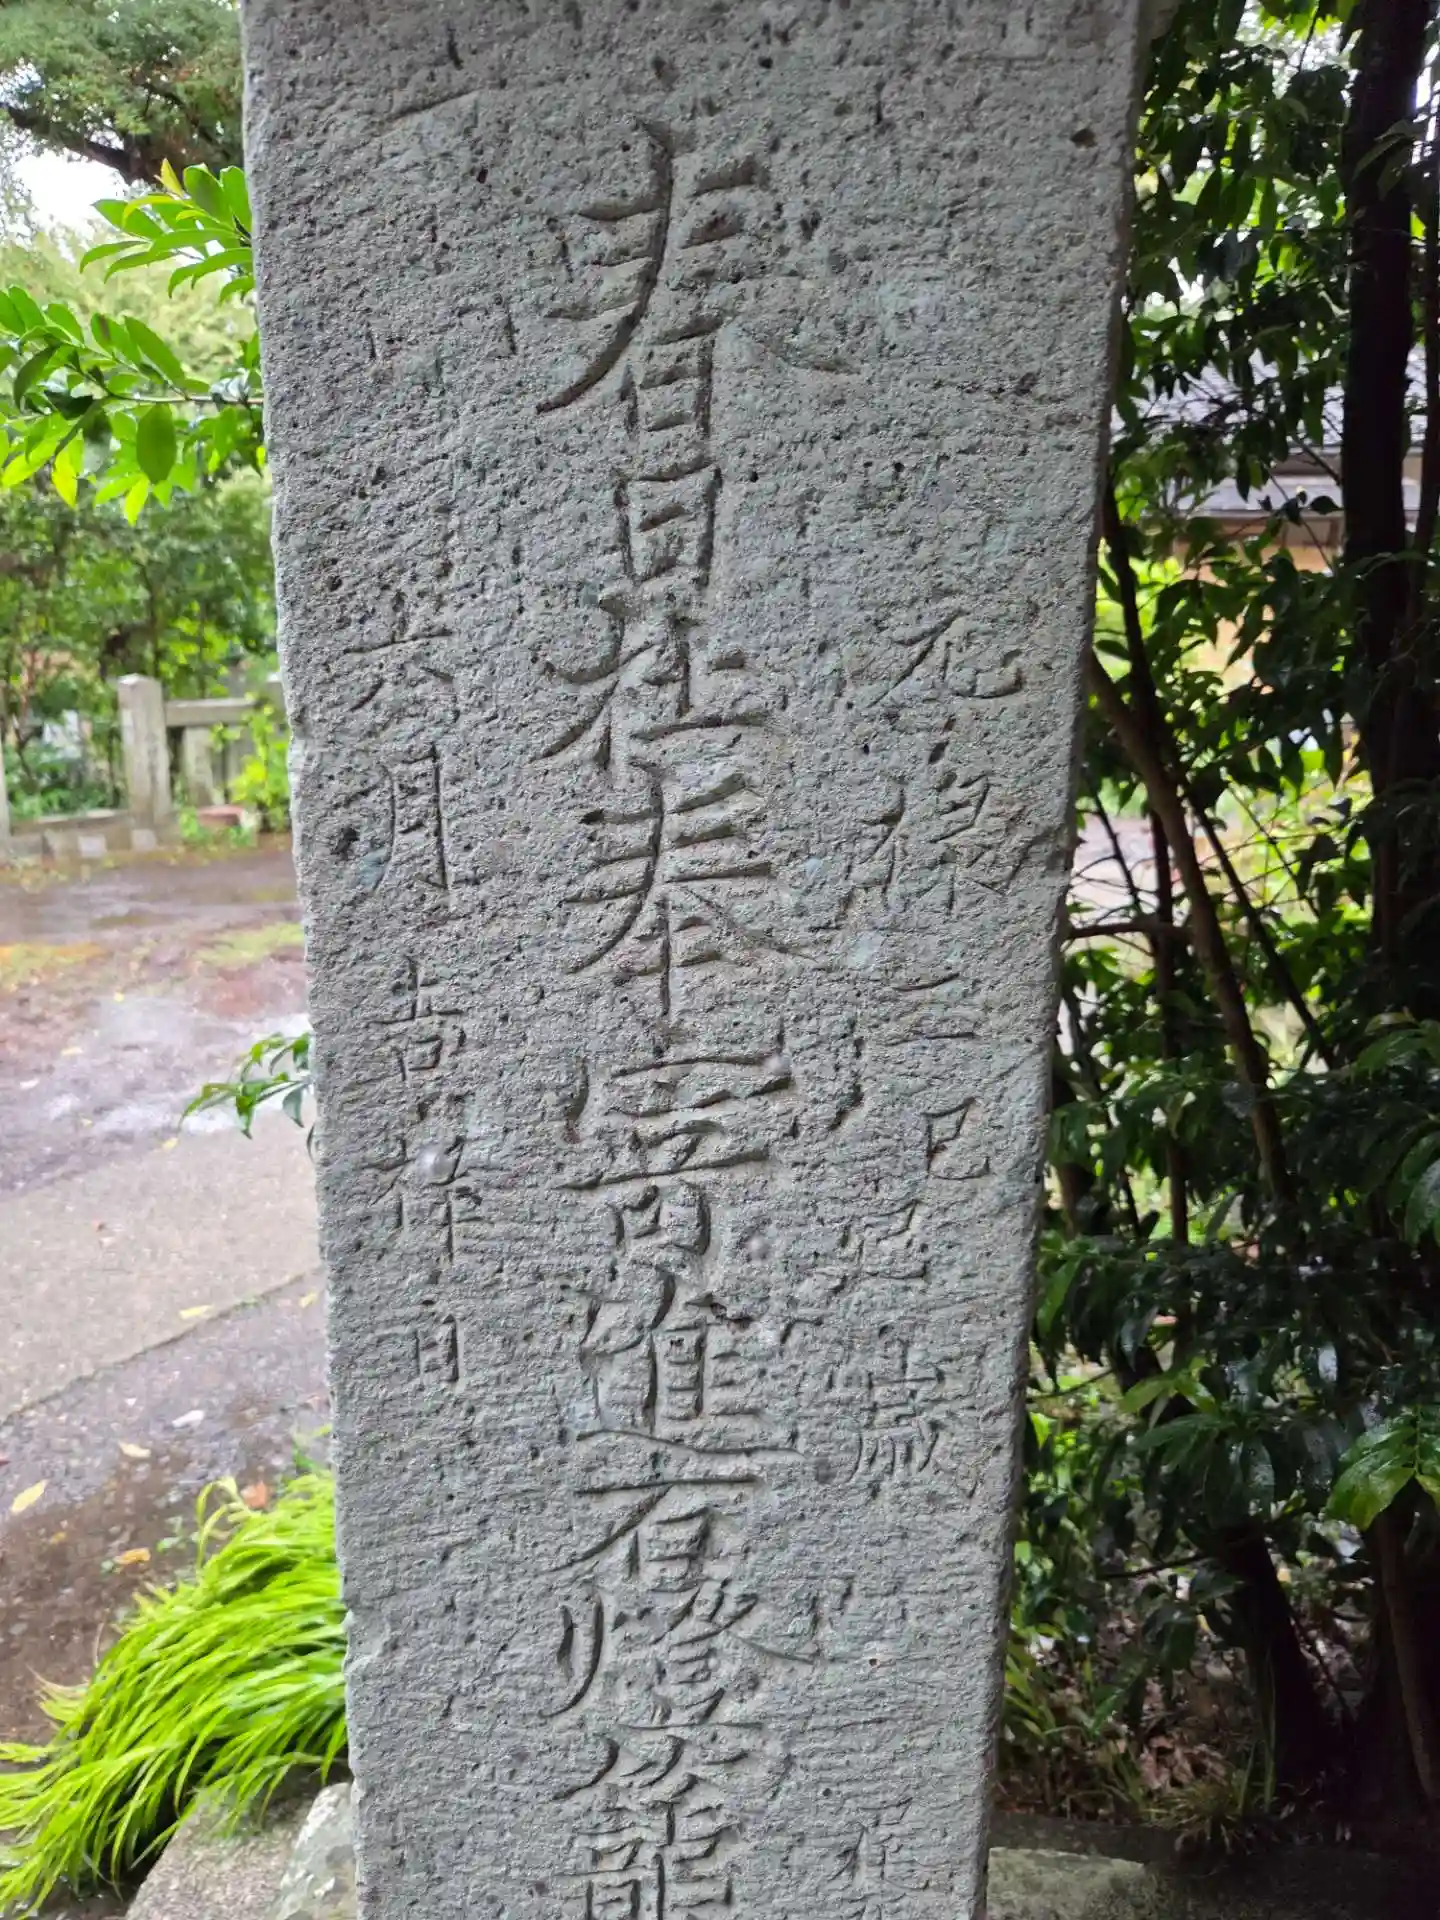 元禄二己巳歳
春日社奉寄進石燈籠
六月吉祥日